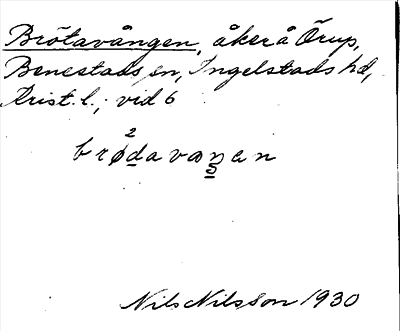 Brötavången, åker å Örup,
Benestads sn, Ingelstads hd,
Krist. l.; vid 6
2
brødavaŋen
Nils Nilsson 1930